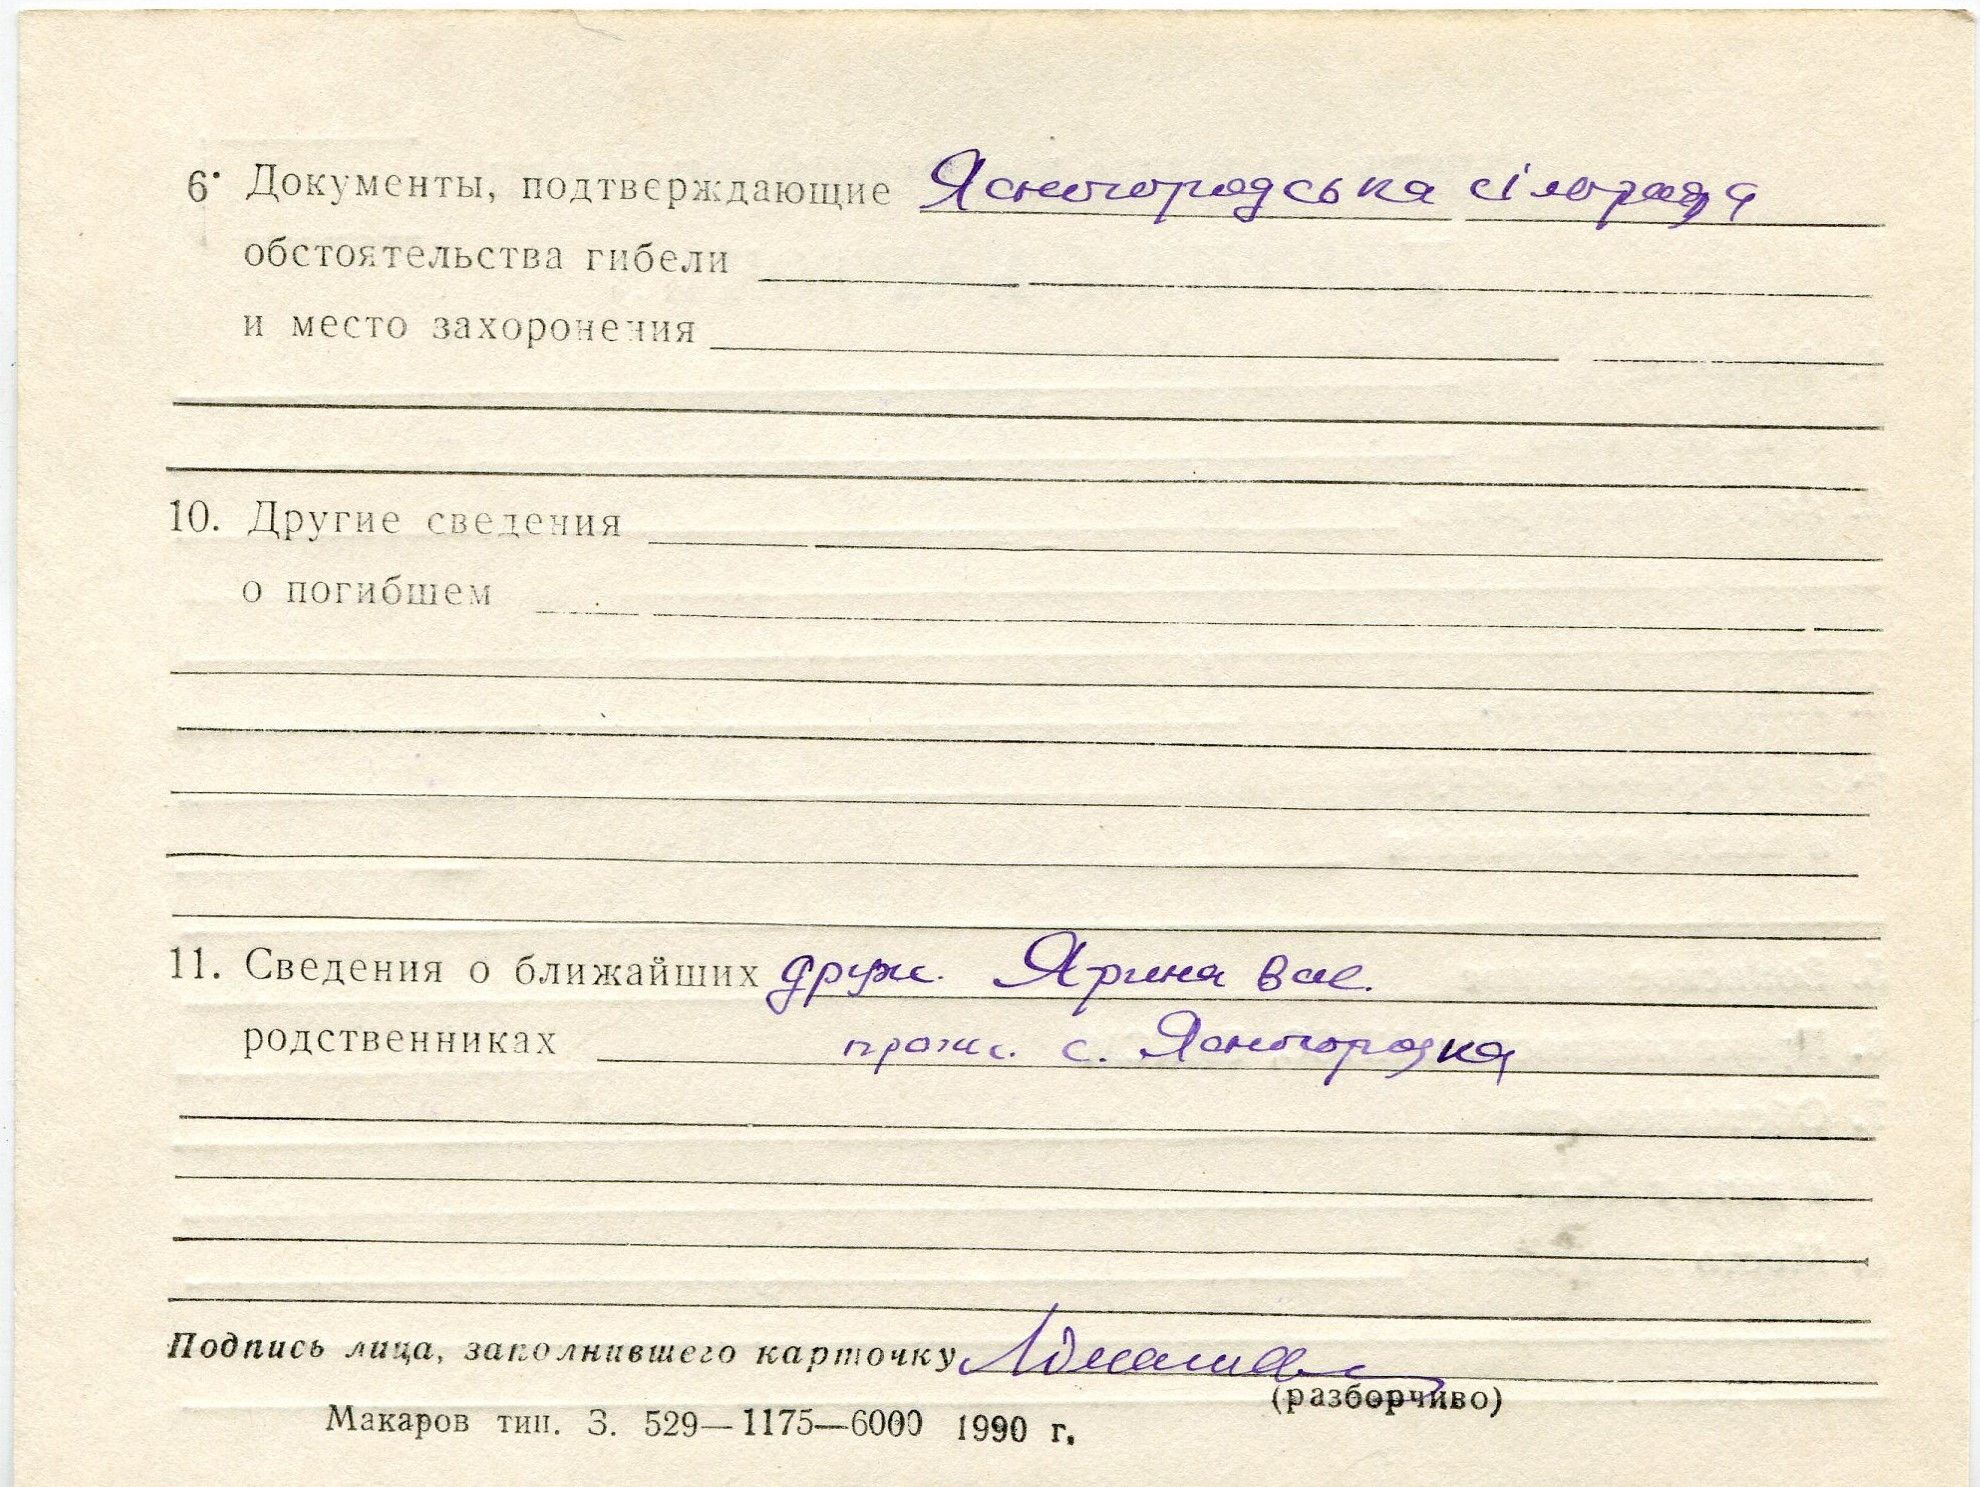 6. Документы, подтверждающие Ясногородська сільрада
обстоятельства гибели
и место захоронения
10. Другие сведения
о погибшем
11. Сведения о ближайших друж. Ярина Вас.
родственниках прож. с. Ясногородка
Подпись лица, заполнившего карточку
(разборчиво)
Макаров тип. З. 529—1175—6000 1990 г.